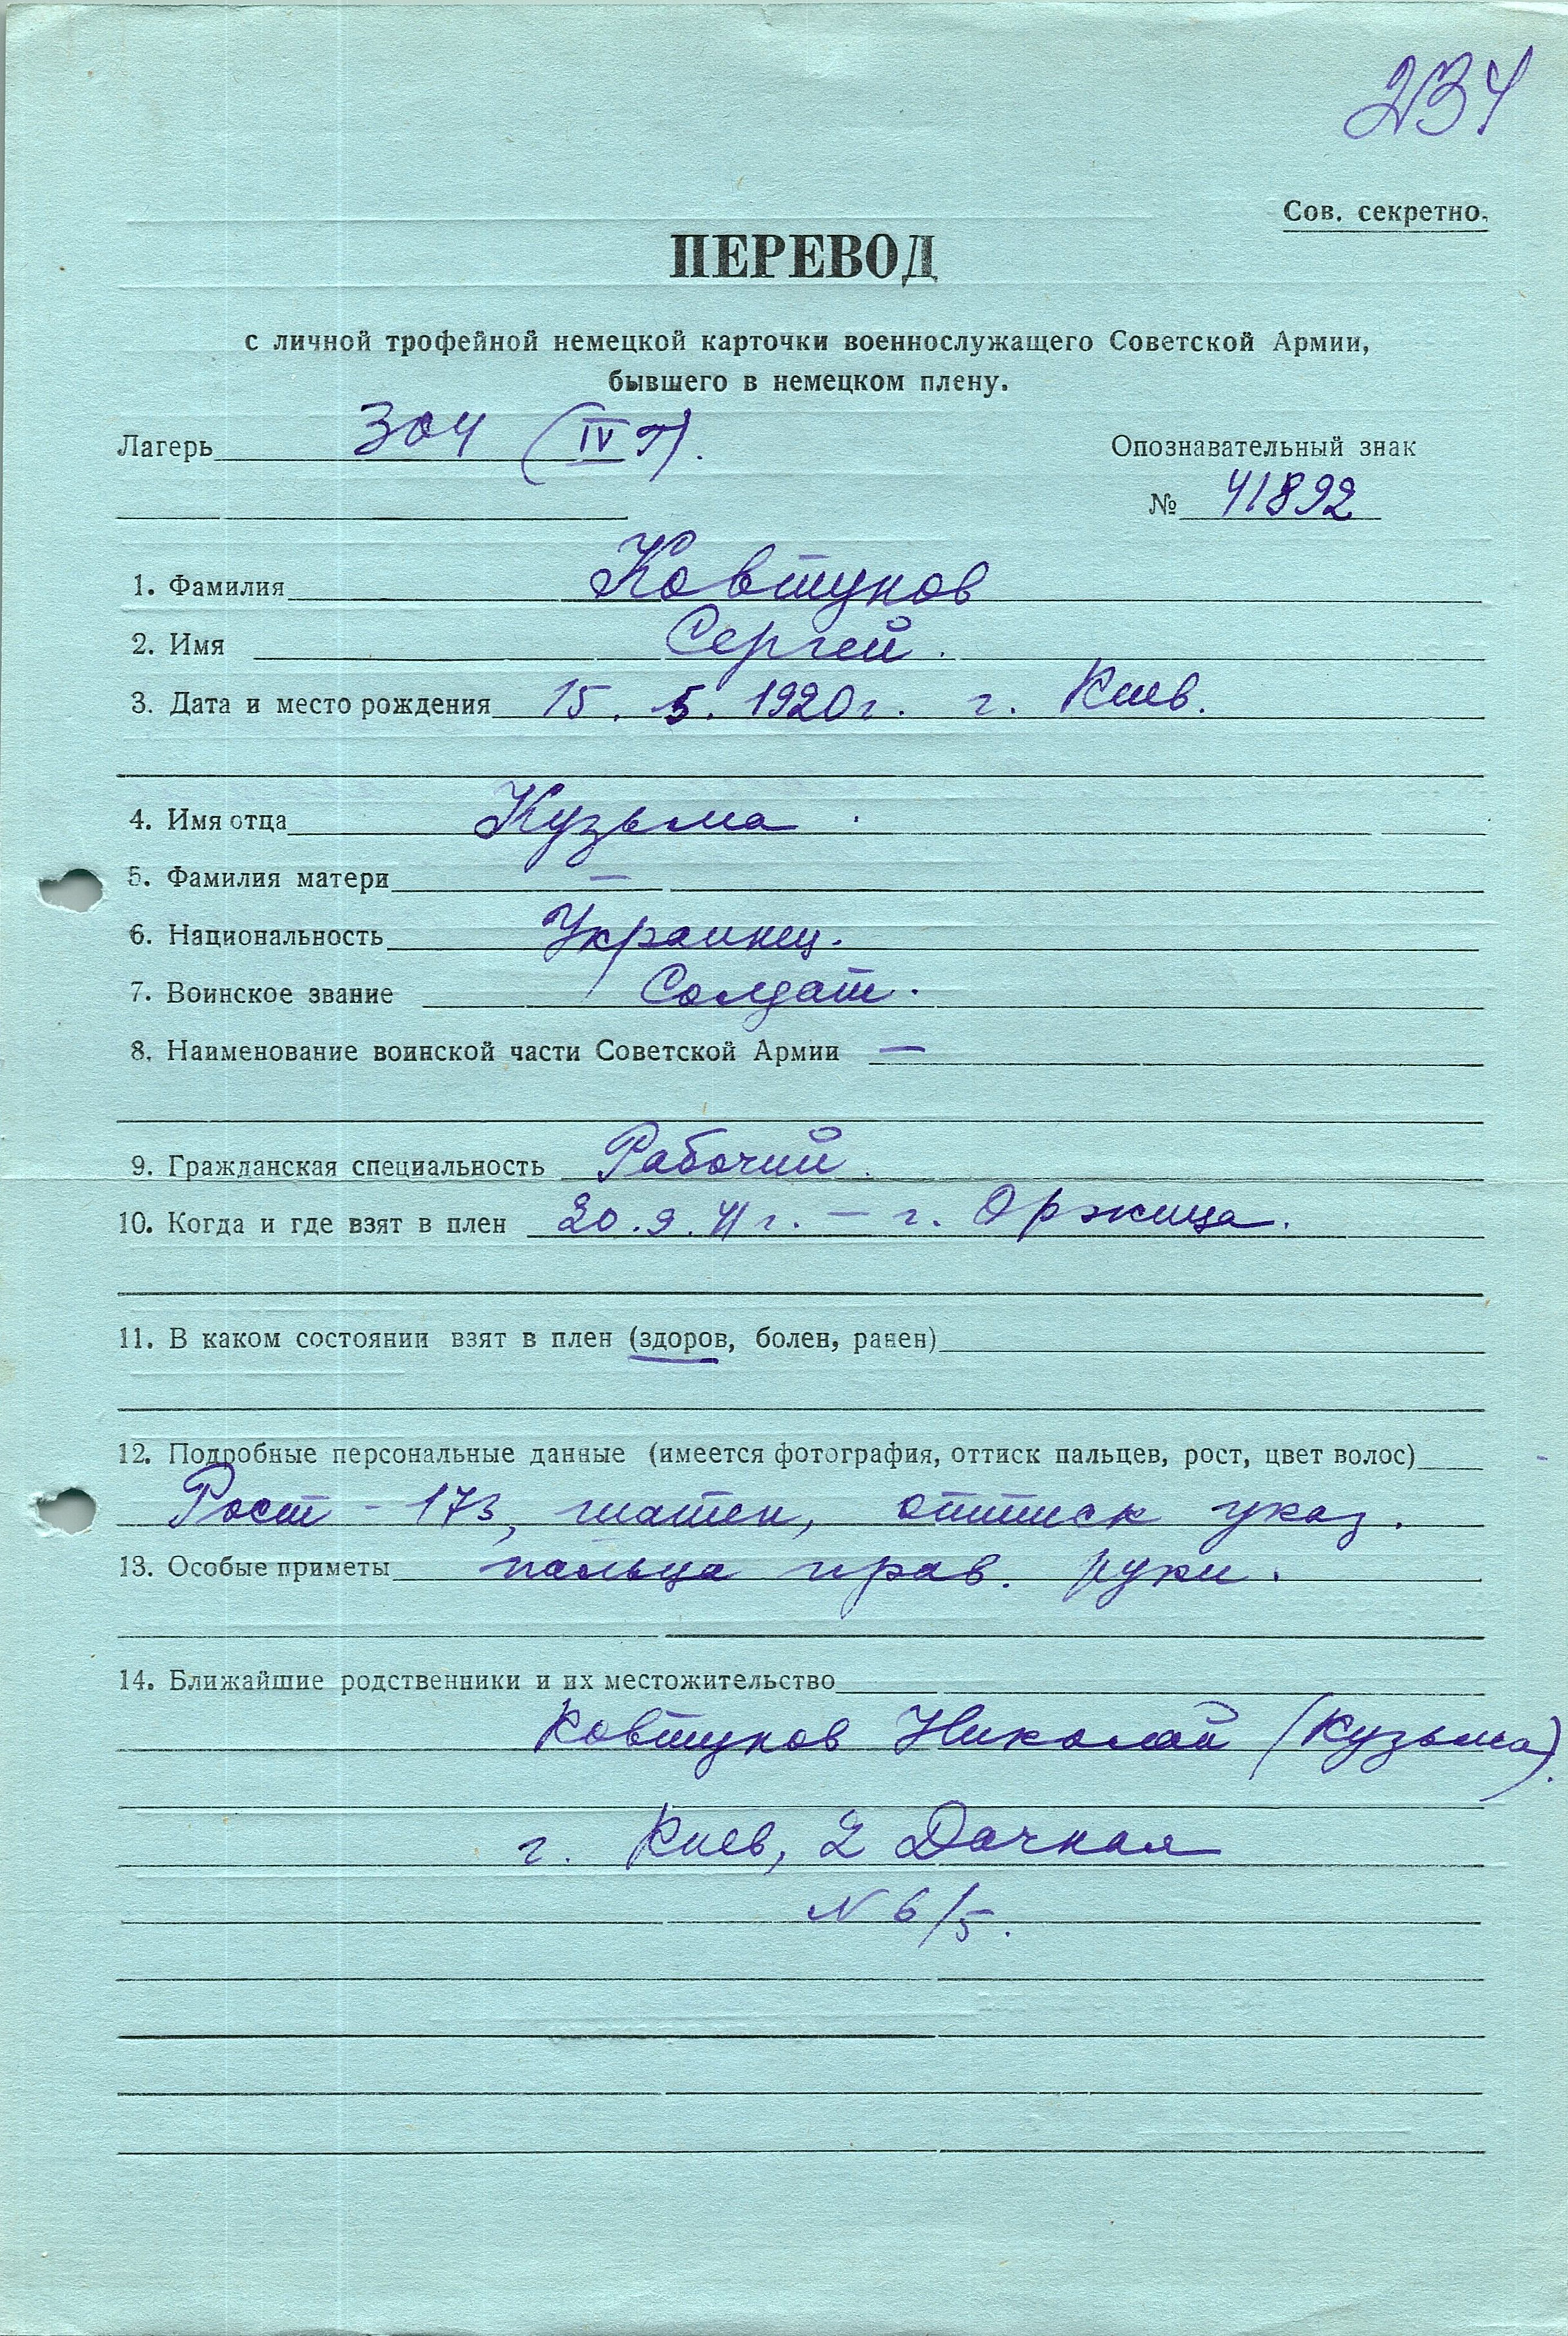 234
Сов. секретно.
ПЕРЕВОД
с личной трофейной немецкой карточки военнослужащего Советской Армии,
бывшего в немецком плену.
Лагерь 304 (IV Г).
Опознавательный знак
№ 41892
1. Фамилия Ковтунов
2. Имя Сергей.
3. Дата и место рождения 15. 5. 1920г. г. Киев.
4. Имя отца Кузьма.
5. Фамилия матери —
6. Национальность Украинец.
7. Воинское звание Солдат.
8. Наименование воинской части Советской Армии —
9. Гражданская специальность Рабочий.
10. Когда и где взят в плен 20.9.41г. — г. Оржица.
11. В каком состоянии взят в плен (здоров, болен, ранен)
12. Подробные персональные данные (имеется фотография, оттиск пальцев, рост, цвет волос)
Рост - 173, шатен, оттиск указ.
13. Особые приметы пальца прав. руки.
14. Ближайшие родственники и их местожительство
Ковтунов Николай (Кузьма).
г. Киев, 2 Дачная
N 6/5.